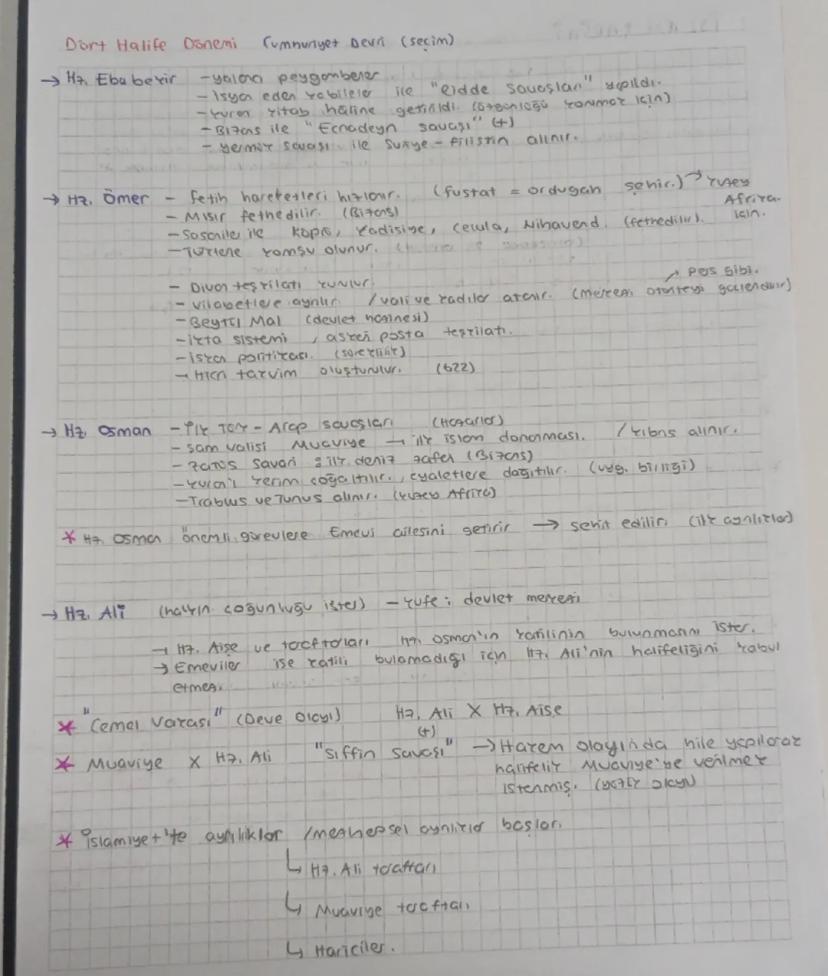 Dört Halife Dönemi Cumhuriyet Devri (seçim)
→ Hz. Ebubekir - yalancı peygamberler
- İsyan eden kabileler ile "Ridde savaşları" yapıldı.
- Kuran kitap haline getirildi. (özgünlüğü korumak için)
- Bizans ile "Ecnadeyn savaşı" (+)
- Yermük savaşı ile Suriye - Filistin alınır.
→ Hz. Ömer - Fetih hareketleri hızlanır. (fustat = ordugah şehir.) → Kuzey Afrika için.
- Mısır fethedilir. (Bizans)
- Sasaniler ile Köprü, Kadisiye, Celula, Nihavend. (fethedilir).
- Türklerle komşu olunur.
- Divan teşkilatı kurulur.
- Vilayetlere ayrılır / vali ve kadılar atanır. (merkezi otoriteyi güçlendirir)
↗ Pers gibi.
- Beytül Mal (devlet hazinesi)
- ikta sistemi, askeri posta teşkilatı.
- iskan politikası. (süreklilik)
- Hicri takvim oluşturulur. (622)
→ Hz. Osman - İlk Türk - Arap savaşları (Hazarlar)
- Şam valisi Muaviye → ilk islam donanması. / Kıbrıs alınır.
- Zatüs Savari : ilk deniz zaferi (Bizans)
- Kuran'ı Kerim çoğaltılır., eyaletlere dağıtılır. (uyg. birliği)
- Trablus ve Tunus alınır. (Kuzey Afrika)
* Hz. Osman önemli görevlere Emevi ailesini getirir → şehit edilir. (ilk ayrılıklar)
→ Hz. Ali (halkın çoğunluğu ister) - Kufe : devlet merkezi
→ Hz. Aişe ve taraftarları Hz. Osman'ın katilinin bulunmasını ister.
→ Emeviler ise katili bulamadığı için Hz. Ali'nin halifeliğini kabul
etmez.
* "Cemal Vakası" (Deve Olayı) Hz. Ali X Hz. Aişe
(+)
* Muaviye X Hz. Ali "Sıffin savaşı" → Hakem olayında hile yapılarak
halifelik Muaviye'ye verilmek
istenmiş.
* İslamiyet'te ayrılıklar / mezhepsel ayrılıklar başlar.
↳ Hz. Ali tarafları
↳ Muaviye tarafları
↳ Hariciler.